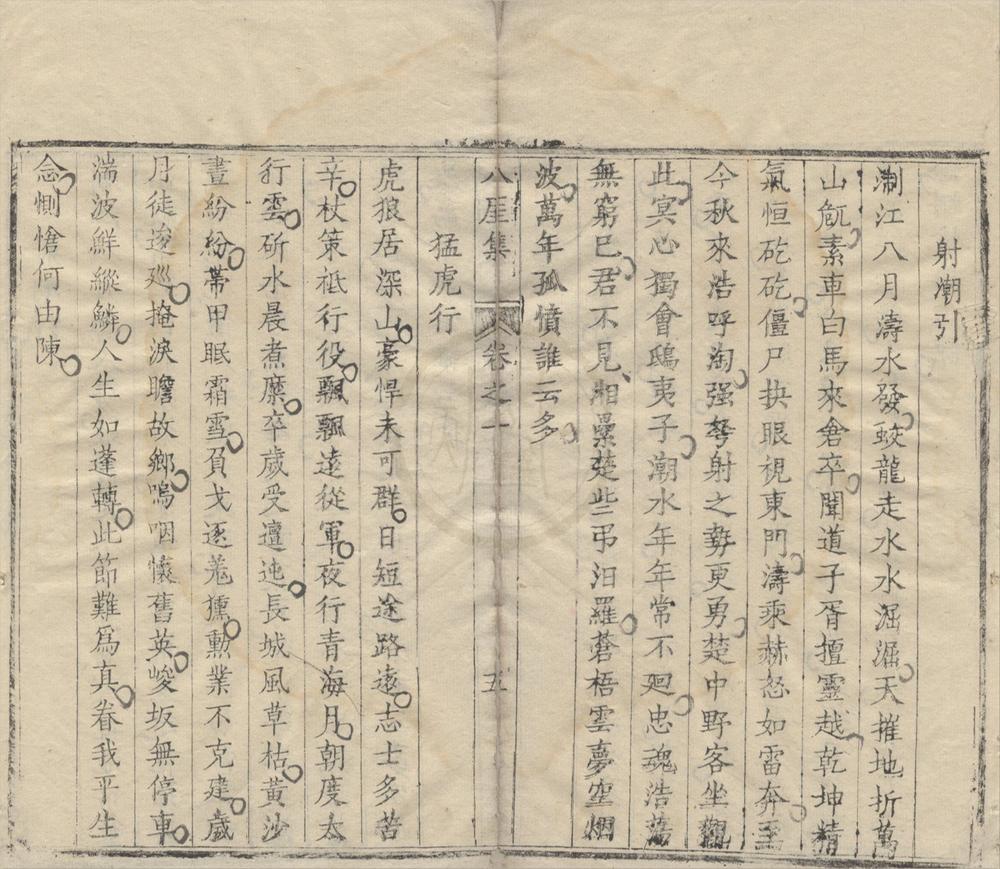 射潮引
淛江八月濤水發蛟龍走水水淈淈天摧地折萬
山甈素車白馬來倉卒聞道子胥擅靈越乾坤精
氣恒矻矻僵尸抉眼視東門濤乘赫怒如雷奔至
今秋來浩呼淘强弩射之勢更勇楚中野客坐觀
此冥心獨會鴟夷子潮水年年常不廻忠魂浩蕩
無窮已君不見湘纍楚些弔汨羅蒼梧雲夢空烟
波萬年孤憤誰云多
八厓集 卷之一 五
猛虎行
虎狼居深山豪悍未可群日短途路遠志士多苦
辛杖策祗行役飄飄遠從軍夜行青海月朝度太
行雲斫水晨煮糜卒歲受邅迍長城風草枯黄沙
晝紛紛帶甲眠霜雪負戈逐羗獯勲業不克建歲
月徒逡廵掩淚瞻故鄉嗚咽懷舊英峻坂無停車
湍波鮮縱鱗人生如蓬轉此節難爲真眷我平生
念惻愴何由陳